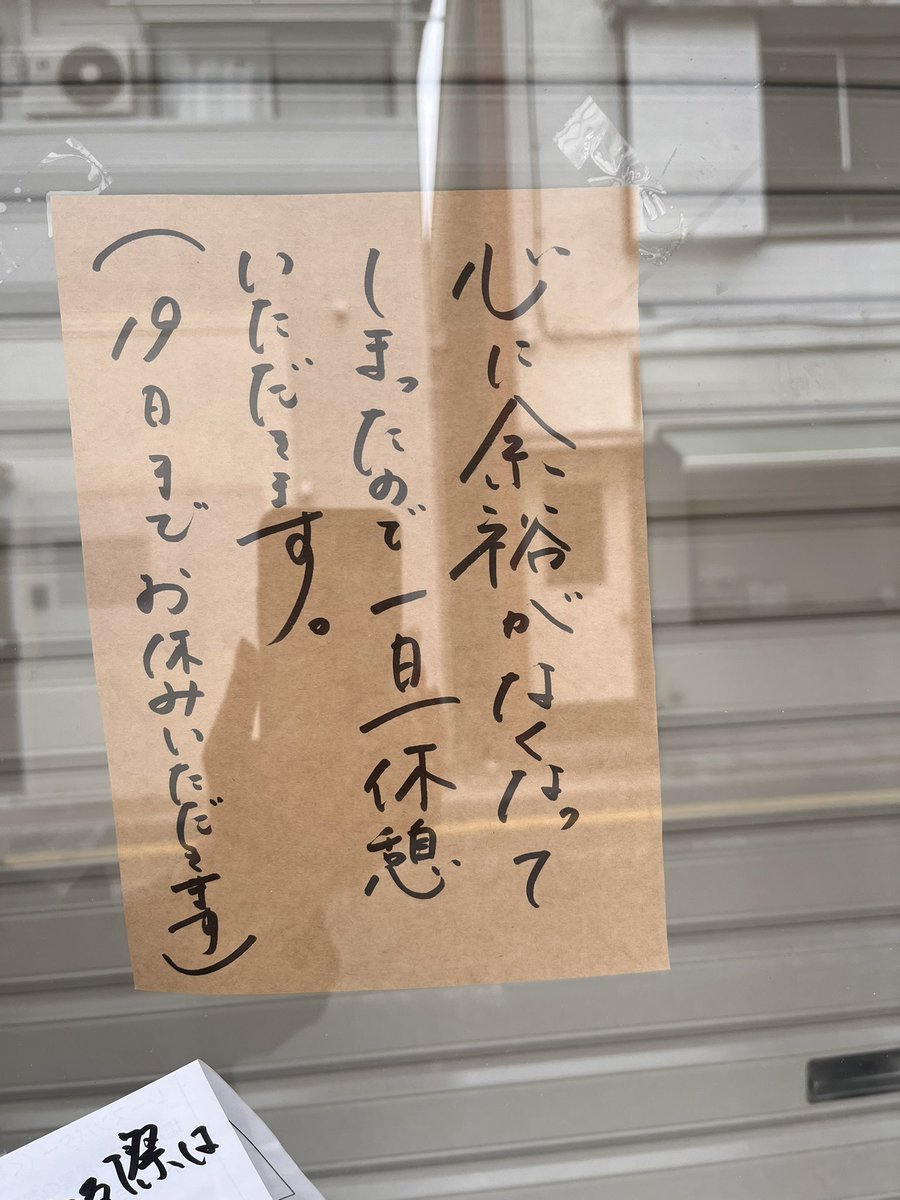 心に余裕がなくなって
しまったので一旦休憩
いただきます。
(19日までお休みいただきます)
際は